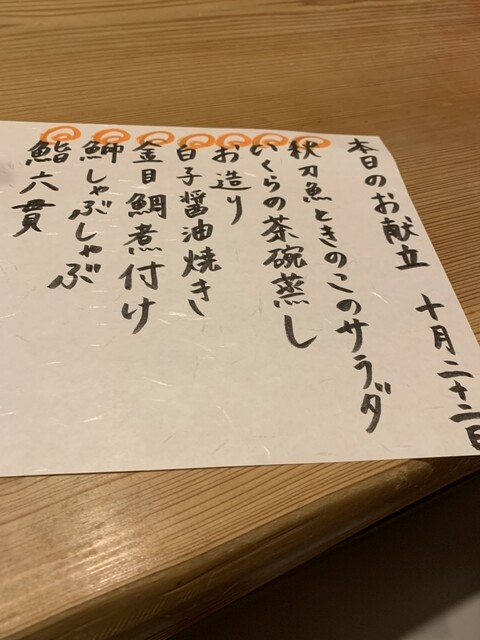 本日のお献立 十月二十二日
秋刀魚ときのこのサラダ
いくらの茶碗蒸し
お造り
白子醤油焼き
金目鯛煮付け
鰤しゃぶしゃぶ
鮨六貫